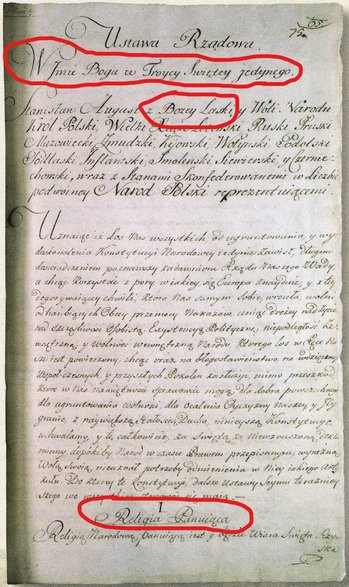 65
75
Ustawa Rządowa.
W Imie Boga w Troycy Swiętey jedynego.
Stanisław August z Bożey Łaski, y Woli Narodu
Krol Polski, Wielki Xiąże Litewski, Ruski, Pruski
Mazowiecki, Zmudzki, Kijowski, Wołyński, Podolski
Podlaski, Inflantski, Smoleński, Siewierski, y Czernie-
chowski, wraz z Stanami Skonfederowanemi w liczbie
podwoyney Narod Polski reprezentuiącemi.
Uznaiąc, iż Los Nas wszystkich od ugruntowania, y wy-
doskonalenia Konstytucyi Narodowey iedynie zawisł, długim
doswiadczeniem poznawszy zadawnione Rządu Naszego Wady,
a chcąc korzystać z pory, w iakiey się Europa znayduie, y z tey
dogorywaiącey chwili, ktora Nas samym Sobie wrociła, wolni
od hanbiących Obcey przemocy Nakazow, ceniąc drożey nad życie
nad szczęśliwość Osobistą Exystencyą Polityczną, niepodległość ze-
wnętrzną, y wolność wewnętrzną Narodu, ktorego los w ręce Na-
sze iest powierzony, chcąc oraz na błogosławieństwo, na wdzięczność
Wspołczesnych, y przyszłych Pokolen zasłużyć, mimo przeszkod
ktore w Nas namiętności sprawować mogą. Dla dobra powszechnego
dla ugruntowania wolności, dla ocalenia Oyczyzny Naszey, y Jey
granic, z naywiększą stałością Ducha, ninieyszą Konstytucyę
uchwalamy, y tę całkowicie za Swiętą, za Niewzruszoną dekla-
ruiemy, dopokiby Narod w czasie Prawem przepisanym, wyrazną
Wolą swoią, nieuznał potrzeby odmienienia w Niey iakiego Arty-
kułu. Do ktorey to Konstytucyi dalsze Ustawy Seymu terażniey-
szego we wszystkim stosować się maią. —
I.
Religia Panuiąca
Religią Narodową panuiącą iest y będzie Wiara Swięta Rzym-
ska